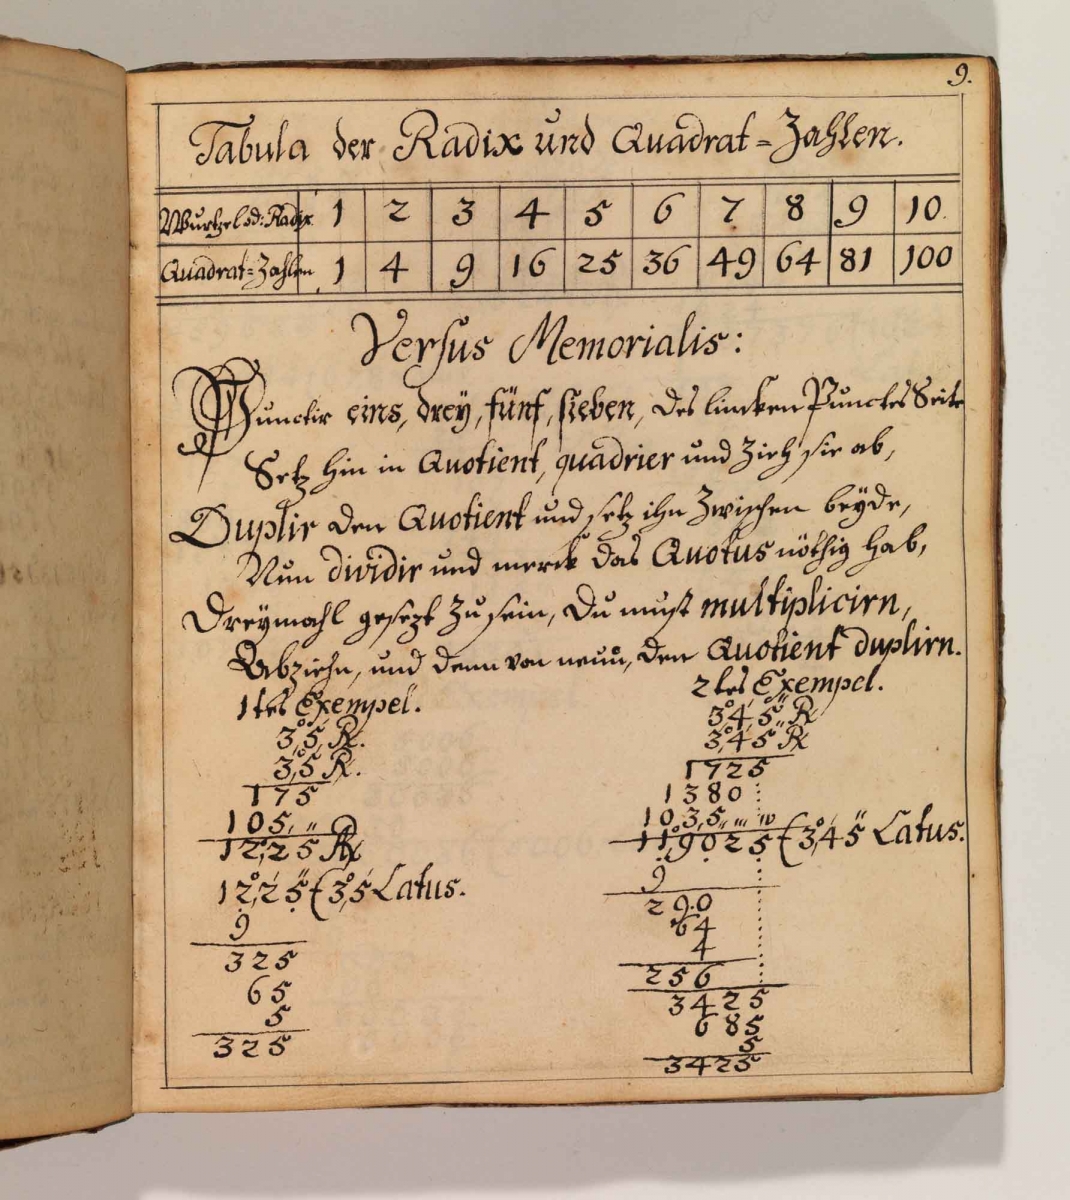 9.
Tabula der Radix und Quadrat=Zahlen.
Wurtzel od: Radix. 1 2 3 4 5 6 7 8 9 10.
Quadrat=Zahlen 1 4 9 16 25 36 49 64 81 100
Versus Memorialis:
Punctir eins, drey, fünf, sieben, des lincken Punctes Seite
Setz hin in Quotient, quadrier und zieh sie ab,
Duplir den Quotient und setz ihn zwischen beyde,
Nun dividir und merck das Quotus nöthig hab,
Dreymahl gesezt zu sein, du must multiplicirn,
Abziehn, und denn von neuū, den Quotient duplirn.
1tes Exempel.
3,5, R.
3,5 R.
175
105,
12,25 R
12,25 (3,5 Latus.
9
325
65
5
325
2tes Exempel.
3,4,5 R
3,45 R
1725
1380
103,5
11,9025 (3,45 Latus.
9
290
64
4
256
3425
685
5
3425